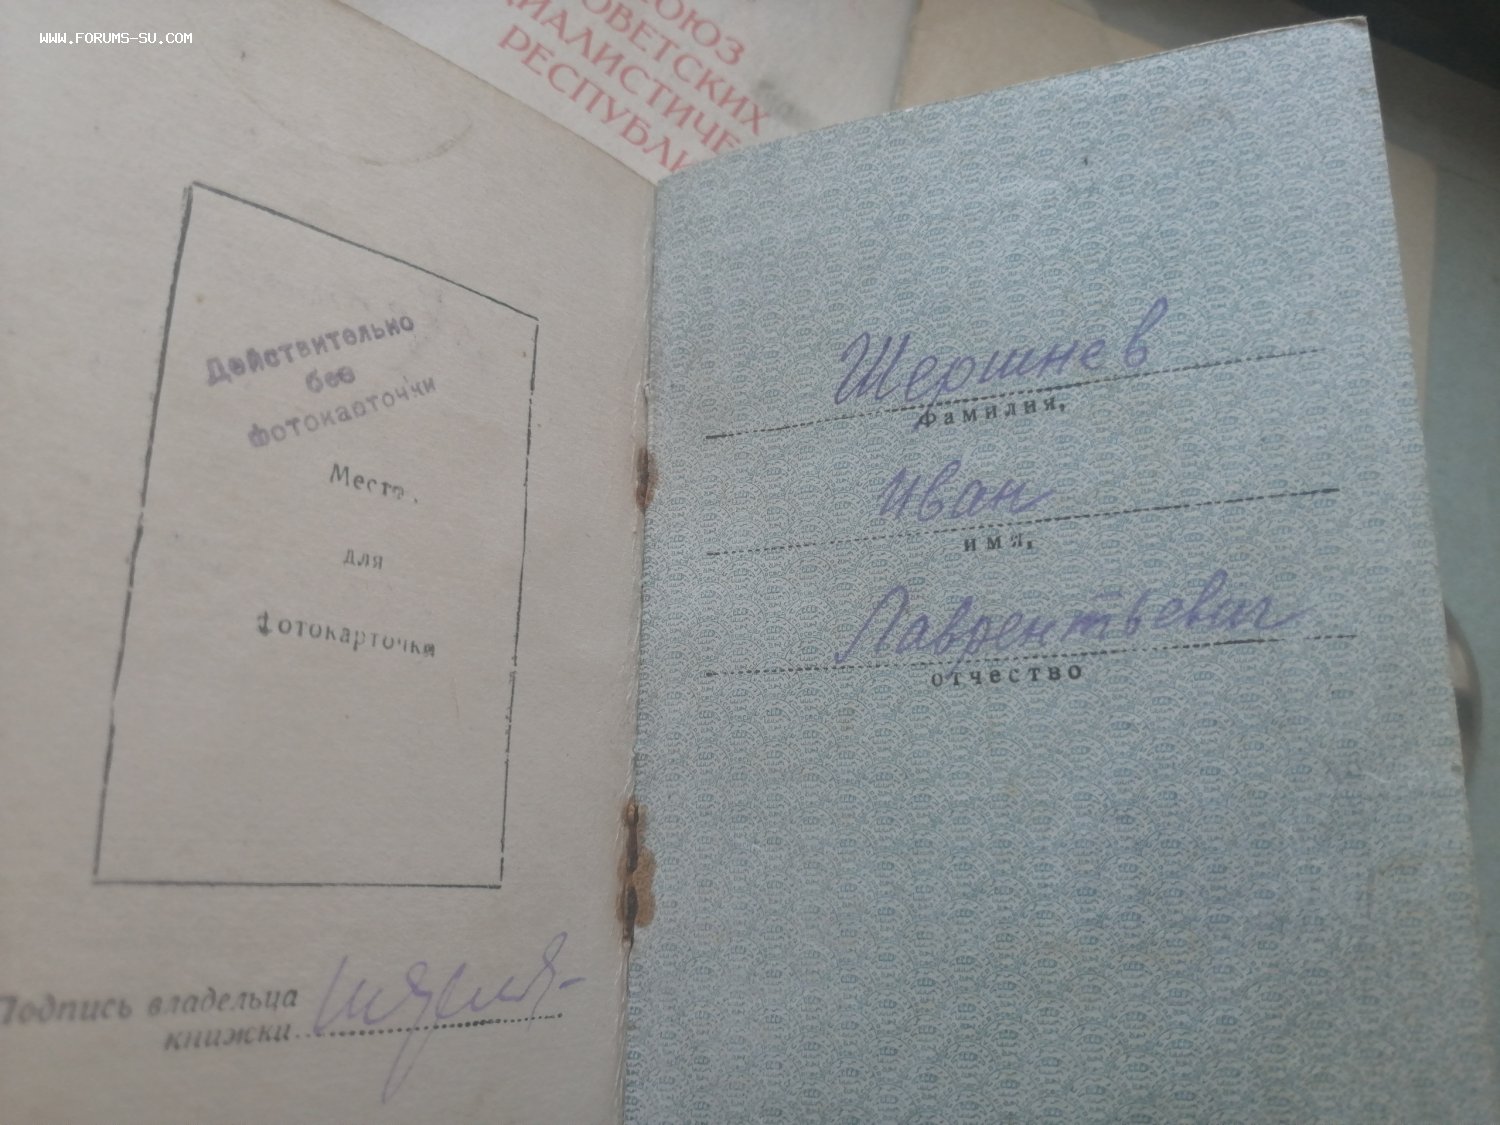 WWW.FORUMS-SU.COM
СОЮЗ
СОВЕТСКИХ
ЦИАЛИСТИЧЕ
РЕСПУБЛИ
Действительно
без
фотокарточки
Место
для
фотокарточки
Подпись владельца
книжки
Шершнев
фамилия,
Иван
имя,
Лаврентьевич
отчество